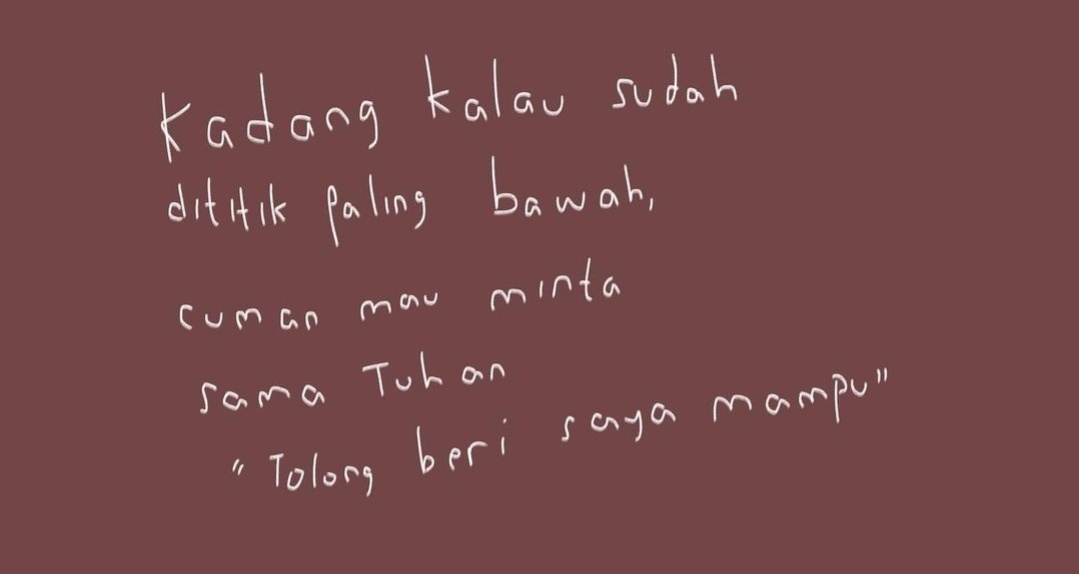 Kadang kalau sudah
dititik paling bawah,
cuman mau minta
sama Tuhan
"Tolong beri saya mampu"